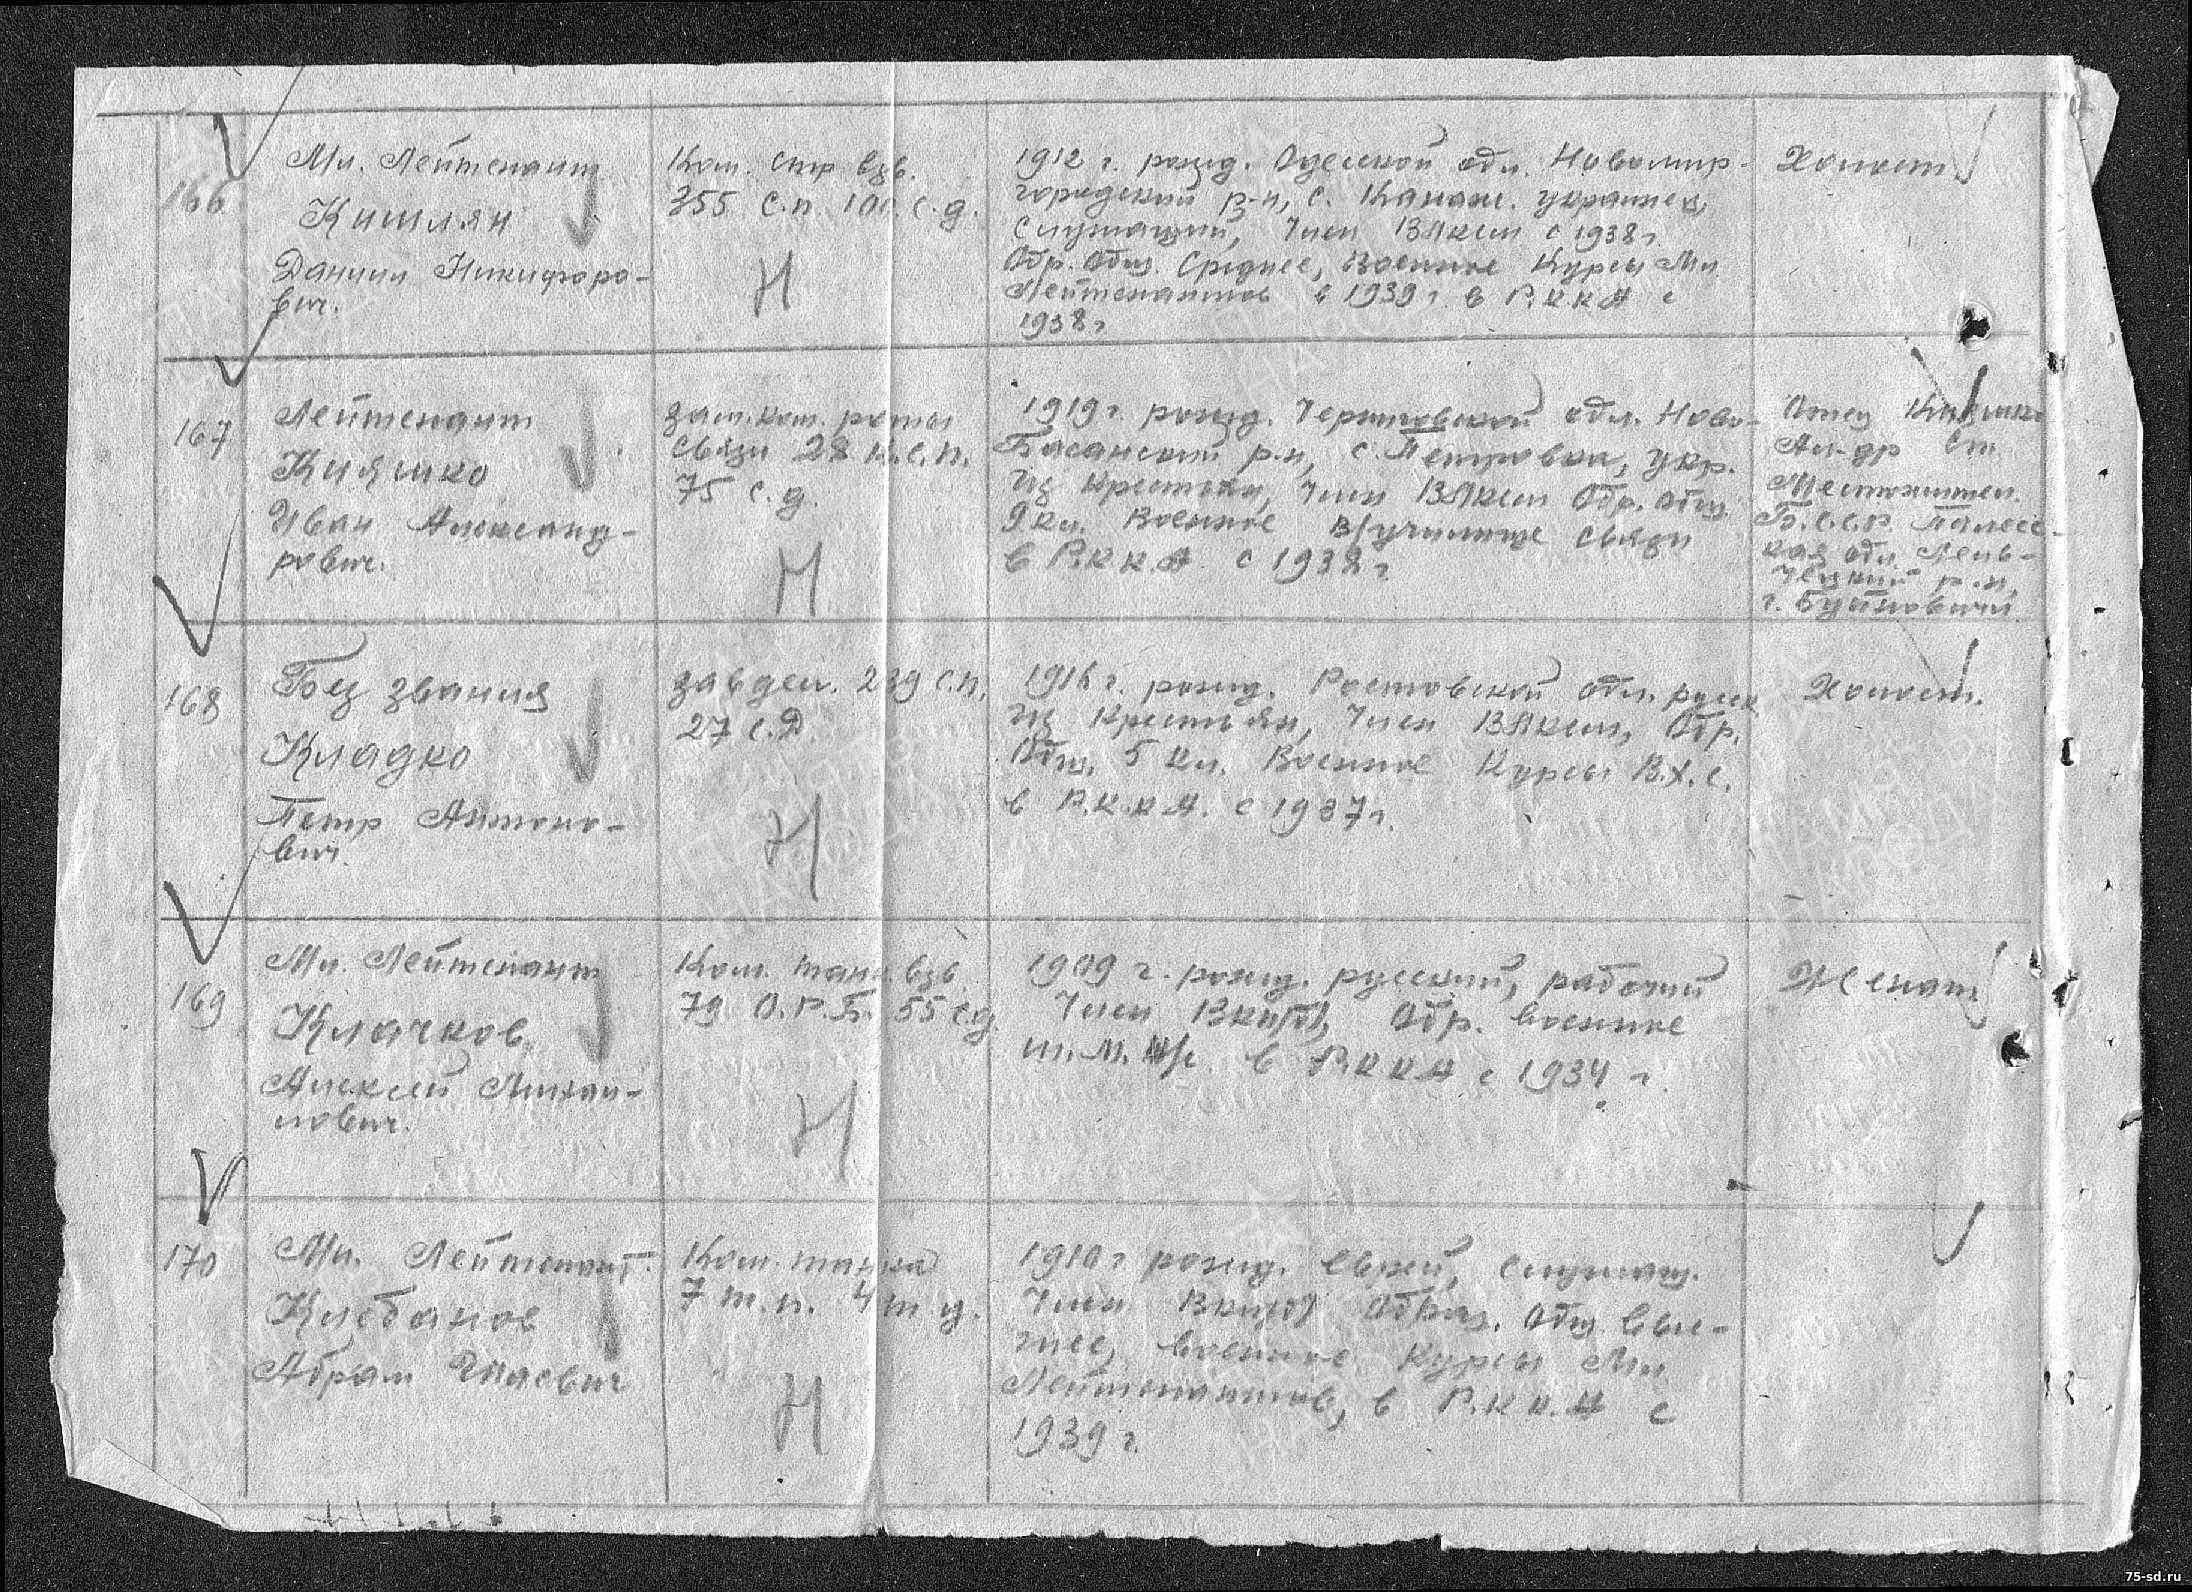 166
Мл. Лейтенант
Кишлян
Даниил Никифоро-
вич.
Ком. стр взв.
355 с.п. 100 с.д.
Н
1912 г. рожд. Одесской обл. Новомир-
городский р-н, с. Канаж. украинец,
служащий, Член ВЛКСМ с 1938 г.
Обр. общ. Среднее, военное Курсы Мл.
Лейтенантов в 1939 г. в Р.К.К.А с
1938 г
Холост
167
Лейтенант
Кияшко
Иван Александ-
рович.
Зам. ком. роты
связи 28 с.п.
75 с.д.
Н
1919 г. рожд. Черниговской обл. Ново-
Басанский р-н, с. Петровка, укр.
из крестьян, Член ВЛКСМ Обр. общ.
9 кл. Военное В/училище связи
в Р.К.К.А. с 1938 г.
Отец Кияшко
Ал-др Ст.
Местожител.
Б.С.С.Р. Полесс-
кая обл. Лель-
чецкий р-н,
г. Буйновичи
168
Без звания
Кладко
Петр Антоно-
вич.
завдел. 239 с.п.
27 с.д.
Н
1916 г. рожд. Ростовской обл. русск
из крестьян, Член ВЛКСМ, Обр.
Общ. 5 кл. Военное Курсы В.Х.С.
в Р.К.К.А. с 1937 г.
Холост.
169
Мл. Лейтенант
Клачков
Алексей Михаи-
лович.
Ком. танк. взв.
79 О.Р.Б. 55 с.д.
Н
1909 г. рожд. русский, рабочий
Член ВКП(б), Обр. военное
в Р.К.К.А с 1934 г.
Женат
170
Мл. Лейтенант.
Клебанов
Абрам Исаевич
Ком. танка
7 т.п. 4 т д.
Н
1910 г рожд. еврей, служащ.
Член ВКП(б) Образ. общ. Выс-
шее, военное Курсы Мл.
Лейтенантов, в Р.К.К.А с
1939 г.
75-sd.ru